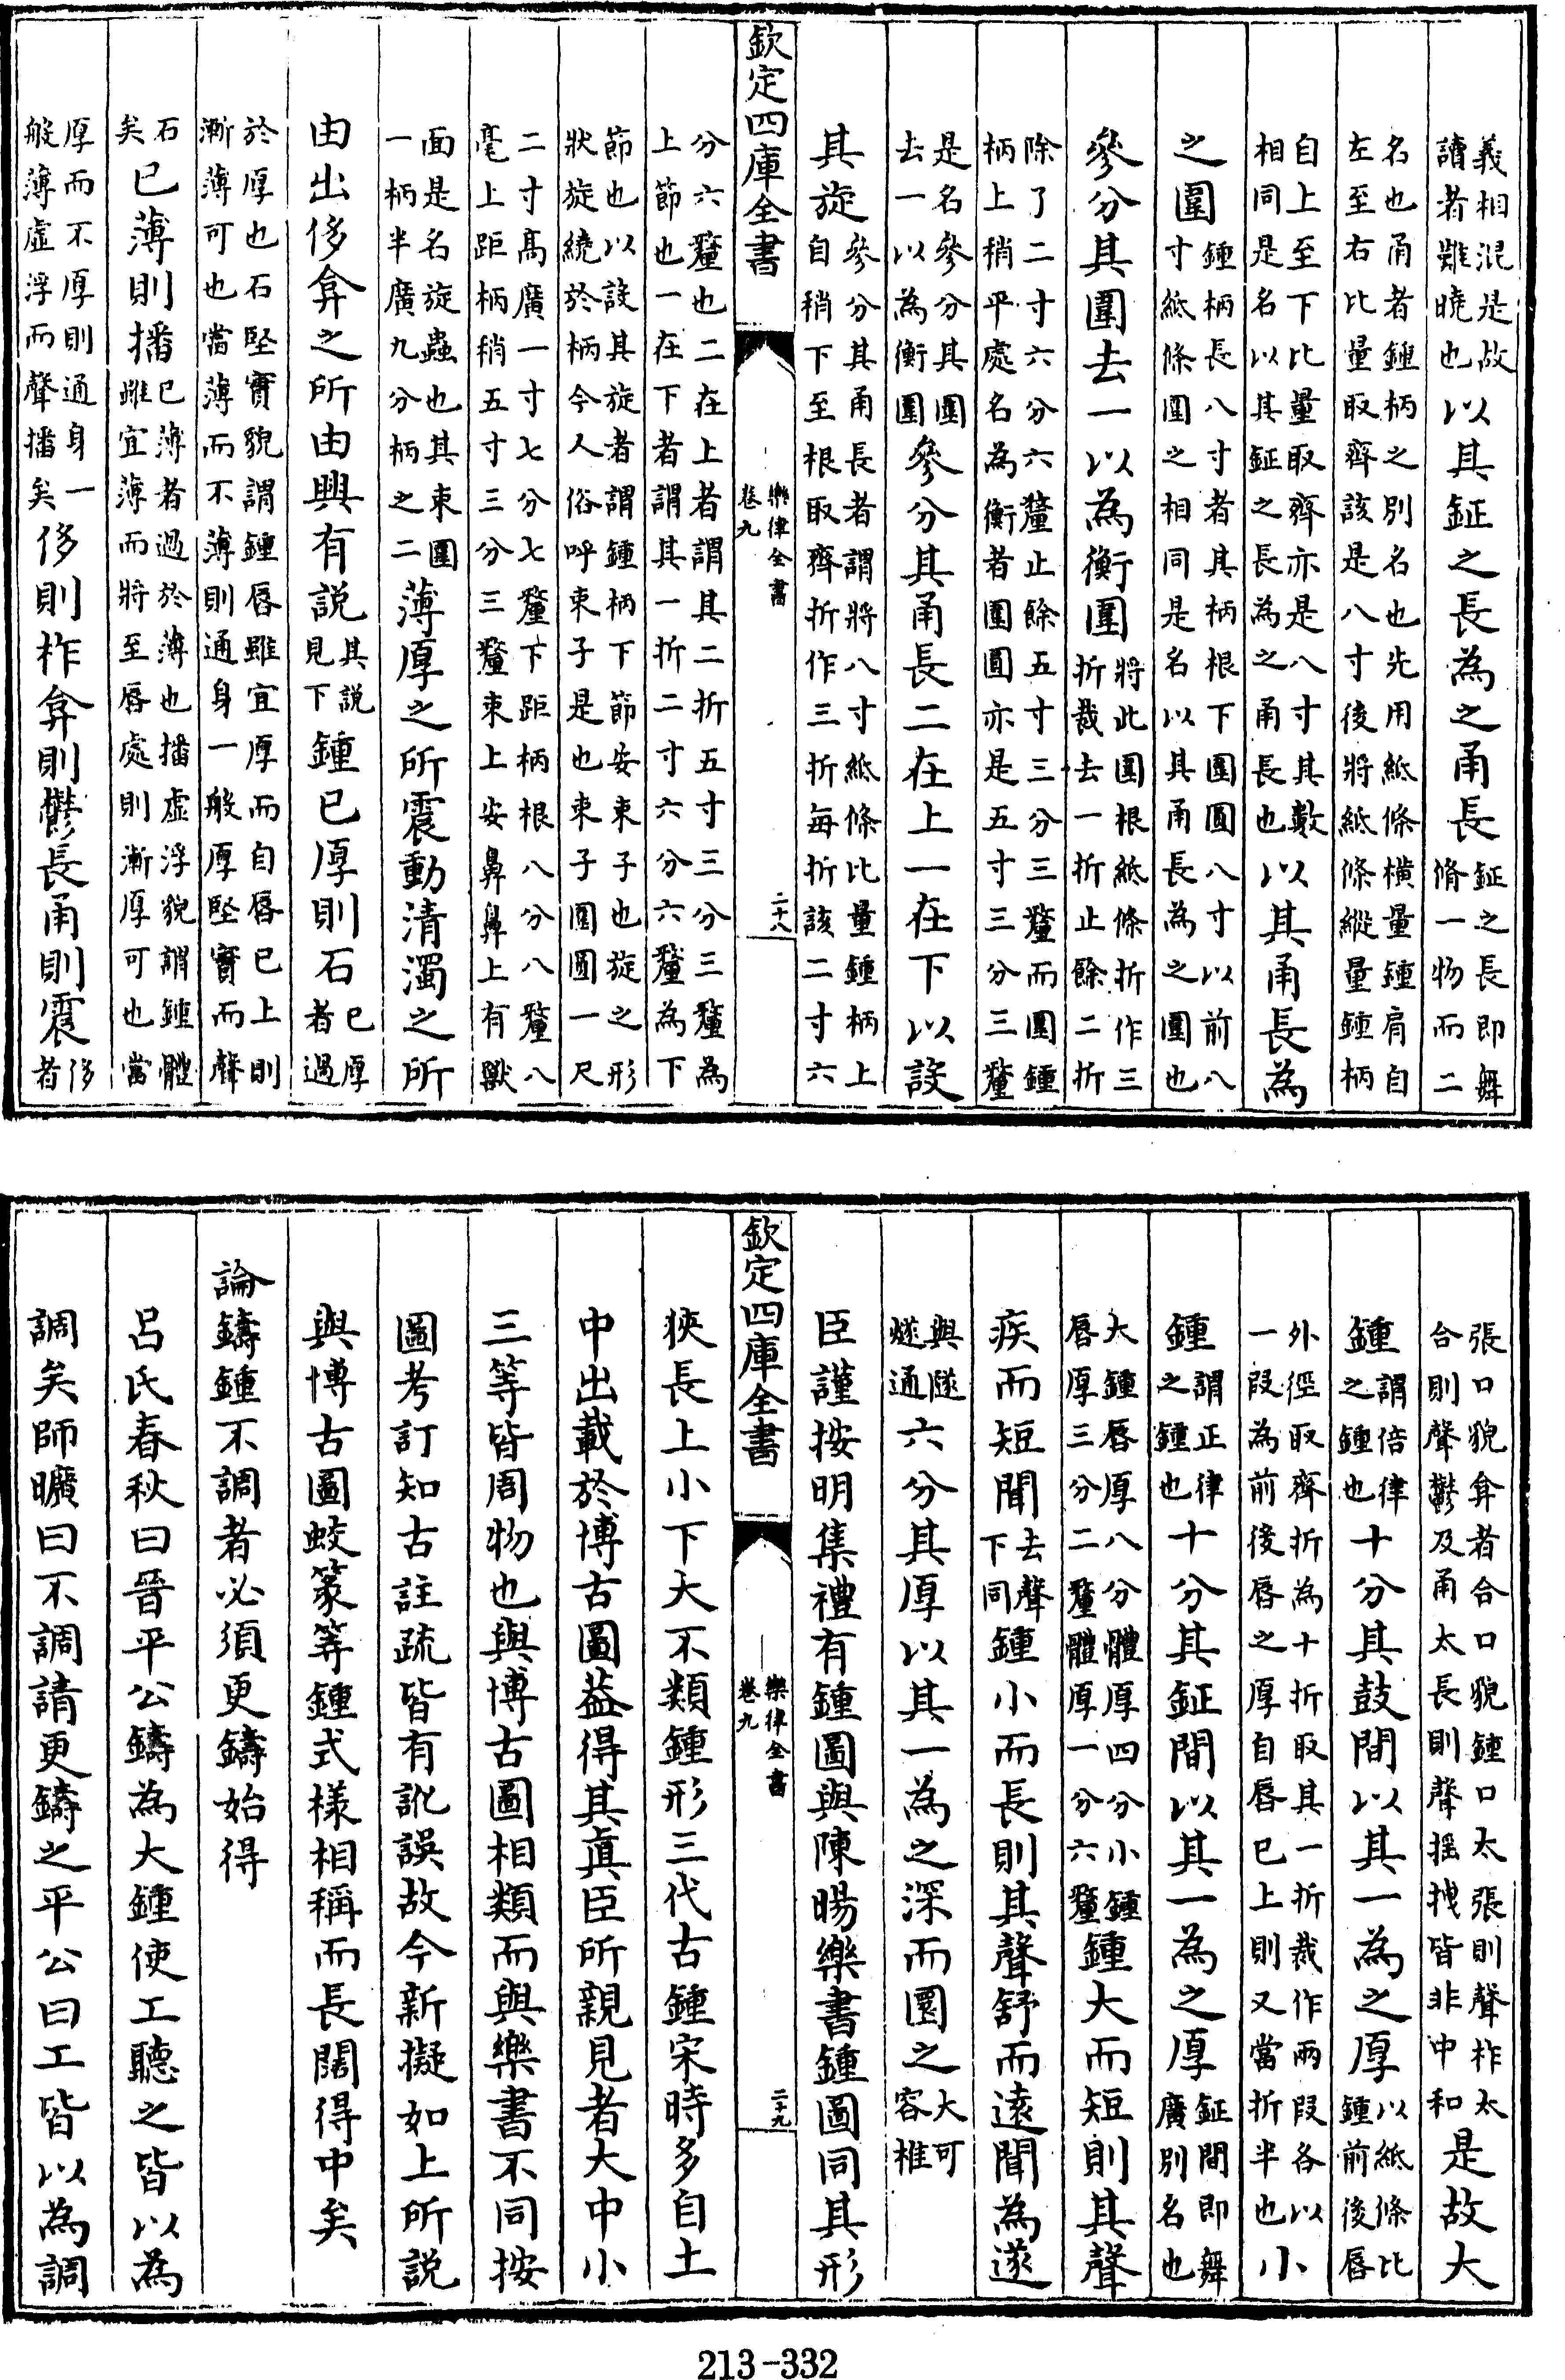 義相混是故讀者難曉也以其鉦之長為之甬長鉦之長即舞脩一物而二
名也甬者鍾柄之別名也先用紙條橫量鍾肩自左至右比量取齊該是八寸後將紙條縱量鍾柄
自上至下比量取齊亦是八寸其數相同是名以其鉦之長為之甬長也以其甬長為
之圍鍾柄長八寸者其柄根下圍圓八寸以前八寸紙條圍之相同是名以其甬長為之圍也
參分其圍去一以為衡圍將此圍根紙條折作三折裁去一折止餘二折
除了二寸六分六釐止餘五寸三分三釐而圍鍾柄上稍平處名為衡者圍圓亦是五寸三分三釐
是名參分其圍去一以為衡圍參分其甬長二在上一在下以設
其旋參分其甬長者謂將八寸紙條比量鍾柄上自稍下至根取齊折作三折每折該二寸六
欽定四庫全書
樂律全書
卷九
二十八
分六釐也二在上者謂其二折五寸三分三釐為上節也一在下者謂其一折二寸六分六釐為下
節也以設其旋者謂鍾柄下節安束子也旋之形狀旋繞於柄今人俗呼束子是也束子圍圓一尺
二寸高廣一寸七分七釐下距柄根八分八釐八毫上距柄稍五寸三分三釐束上安鼻鼻上有獸
面是名旋蟲也其束圍一柄半廣九分柄之二薄厚之所震動清濁之所
由出侈弇之所由興有說其說見下鍾已厚則石已厚者過
於厚也石堅實貌謂鍾唇雖宜厚而自唇已上則漸薄可也當薄而不薄則通身一般厚堅實而聲
石矣已薄則播已薄者過於薄也播虛浮貌謂鍾體雖宜薄而將至唇處則漸厚可也當
厚而不厚則通身一般薄虛浮而聲播矣侈則柞弇則鬱長甬則震侈者
張口貌弇者合口貌鍾口太張則聲柞太合則聲鬱及甬太長則聲摇拽皆非中和是故大
鍾謂倍律之鍾也十分其鼓間以其一為之厚以紙條比鍾前後唇
外徑取齊折為十折取其一折裁作兩段各以一段為前後唇之厚自唇已上則又當折半也小
鍾謂正律之鍾也十分其鉦間以其一為之厚鉦間即舞廣別名也
大鍾唇厚八分體厚四分小鍾唇厚三分二釐體厚一分六釐鍾大而短則其聲
疾而短聞去聲下同鍾小而長則其聲舒而遠聞為遂
與隧燧通六分其厚以其一為之深而圜之大可容椎
臣謹按明集禮有鍾圖與陳暘樂書鍾圖同其形
欽定四庫全書
樂律全書
卷九
二十九
狹長上小下大不類鍾形三代古鍾宋時多自土
中出載於博古圖葢得其真臣所親見者大中小
三等皆周物也與博古圖相類而與樂書不同按
圖考訂知古註疏皆有訛誤故今新擬如上所說
與博古圖蛟篆等鍾式樣相稱而長闊得中矣
論鑄鍾不調者必須更鑄始得
呂氏春秋曰晉平公鑄為大鍾使工聽之皆以為
調矣師曠曰不調請更鑄之平公曰工皆以為調
213-332